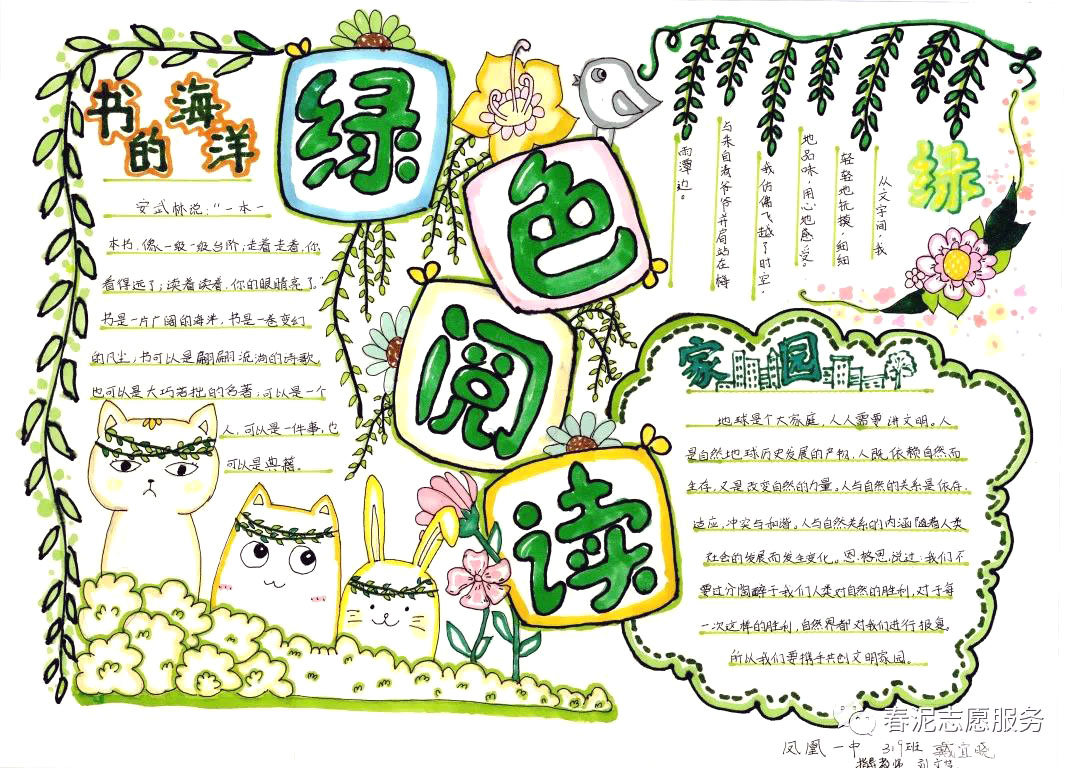 绿色阅读
书海
的洋
安武林说:“一本一
本书,像一级一级台阶;走着走着,你
看得远了;读着读着,你的眼睛亮了。”
书是一片广阔的海洋,书是一卷变幻
的风尘;书可以是翩翩流淌的诗歌,
也可以是大巧若拙的名著;可以是一个
人,可以是一件事,也
可以是典籍。
绿
从文字间,我
轻轻地抚摸,细细
地品味,用心地感受。
我仿佛飞越了时空,
与朱自清爷爷并肩站在梅
雨潭边。
家园
地球是个大家庭,人人需要讲文明。人
是自然地球历史发展的产物,人既依赖自然而
生存,又是改变自然的力量。人与自然的关系是依存,
适应,冲突与和谐。人与自然关系的内涵随着人类
社会的发展而发生变化。恩格思说过:我们不
要过分陶醉于我们人类对自然的胜利,对于每
一次这样的胜利,自然界都对我们进行报复。
所以我们要携手共创文明家园。
春泥志愿服务
凤凰一中 319班 戴宜晓
指导教师